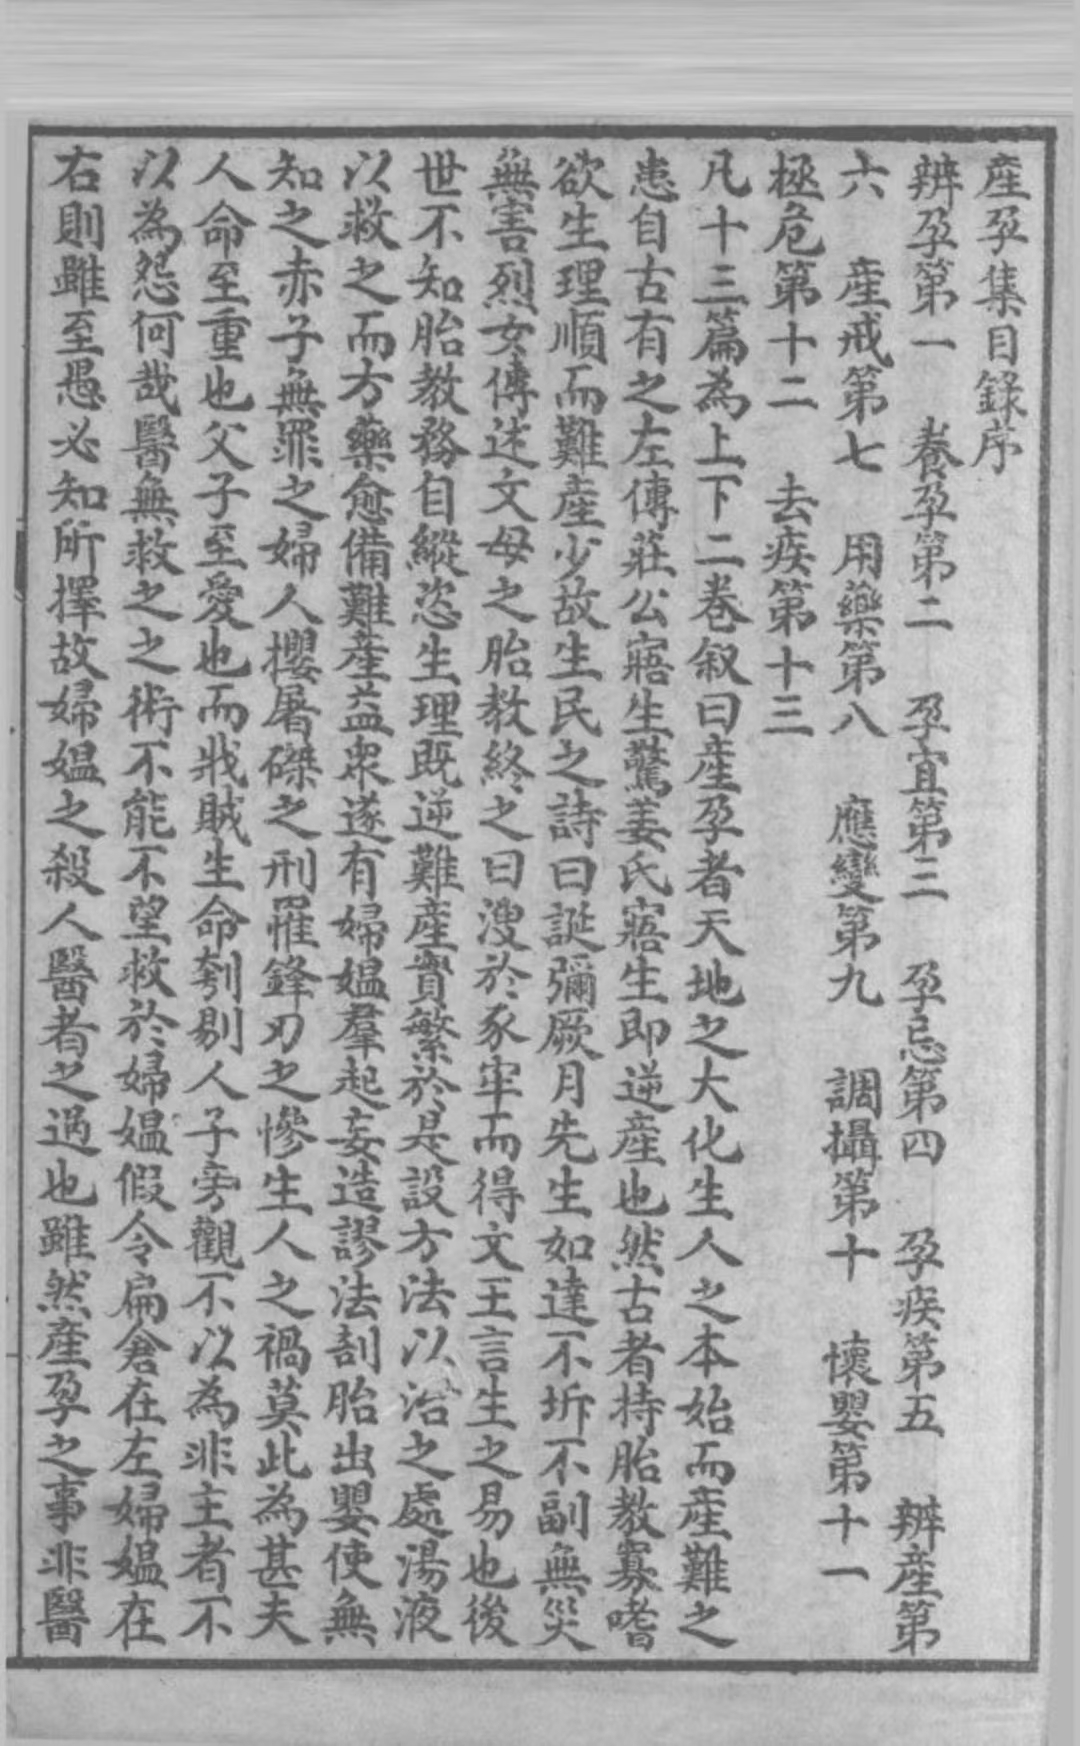 產孕集目錄序
辨孕第一　養孕第二　孕宜第三　孕忌第四　孕疾第五　辨產第
六　產戒第七　用藥第八　應變第九　調攝第十　懷嬰第十一
極危第十二　去疾第十三
凡十三篇為上下二卷叙曰產孕者天地之大化生人之本始而產難之
患自古有之左傳莊公寤生驚姜氏寤生即逆產也然古者持胎教寡嗜
欲生理順而難產少故生民之詩曰誕彌厥月先生如達不坼不副無災
無害烈女傳述文母之胎教終之曰溲於豕牢而得文王言生之易也後
世不知胎教務自縱恣生理既逆難產實繁於是設方法以治之處湯液
以救之而方藥愈備難產益衆遂有婦媼羣起妄造謬法刮胎出嬰使無
知之赤子無罪之婦人攖屠磔之刑罹鋒刃之慘生人之禍莫此為甚夫
人命至重也父子至愛也而戕賊生命刳剔人子旁觀不以為非主者不
以為怨何哉醫無救之之術不能不望救於婦媼假令扁倉在左婦媼在
右則雖至愚必知所擇故婦媼之殺人醫者之過也雖然產孕之事非醫